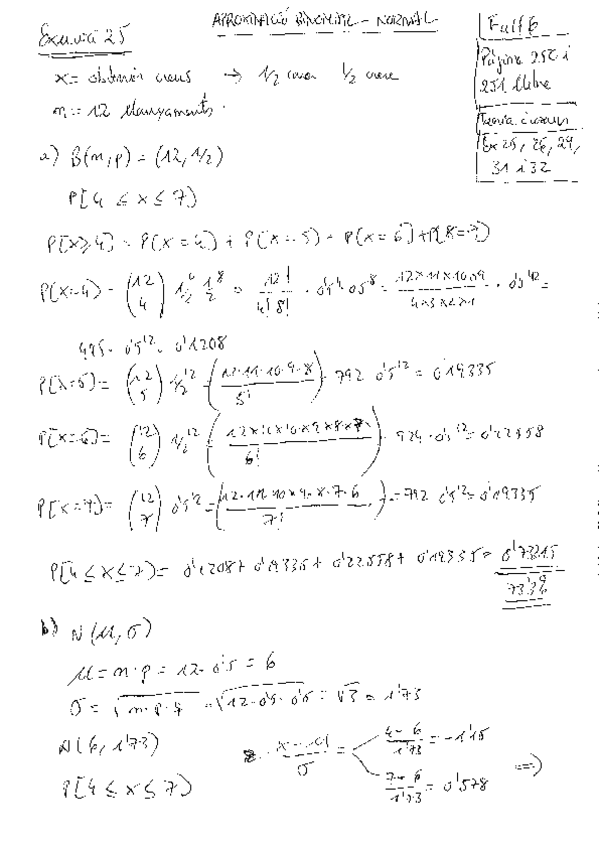 APROXIMACIÓ BINOMIAL - NORMAL
Full 6
Pàgina 250 i
251 llibre
Teoria i exercici
Ex 25, 26, 29,
31 i 32
Exercici 25
x = obtenir creus → 1/2 cara 1/2 creu
n = 12 llançaments.
a) B(n,p) = (12, 1/2)
P[4 ≤ x ≤ 7)
P[x≥4] = P(x=4) + P(x=5) + P(x=6] + P[8=7]
P(x=4) = (12 4) 1/2^6 1/2^8 = 12!/4!8! · 0'5^4 · 0'5^8 = 12×11×10×9/4×3×2×1 · 0'5^12 =
495 · 0'5^12 = 0'1208
P(x=5) = (12 5) 1/2^12 = (12·11·10·9·8/5!) · 792 0'5^12 = 0'19335
P(x=6) = (12 6) 1/2^12 = (12×11×10×9×8×7/6!) · 924 · 0'5^12 = 0'22558
P(x=7) = (12 7) 0'5^12 = (12·11·10×9·8·7·6/7!) = 792 0'5^12 = 0'19335
P[4 ≤ x ≤ 7) = 0'1208 + 0'19335 + 0'22558 + 0'19335 = 0'73315
b) N(μ, σ)
μ = n·p = 12·0'5 = 6
σ = √n·p·q = √12·0'5·0'5 = √3 = 1'73
N(6, 1'73)
x-μ/σ = 4-6/1'73 = -1'15
P[4 ≤ x ≤ 7)
7-6/1'73 = 0'578 ⇒